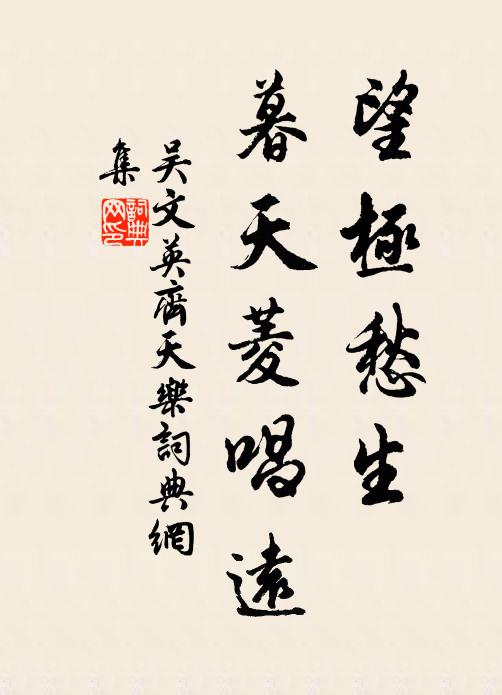 望極愁生
暮天菱唱遠
吴文英齊天樂詞典網
集
詞典
网印